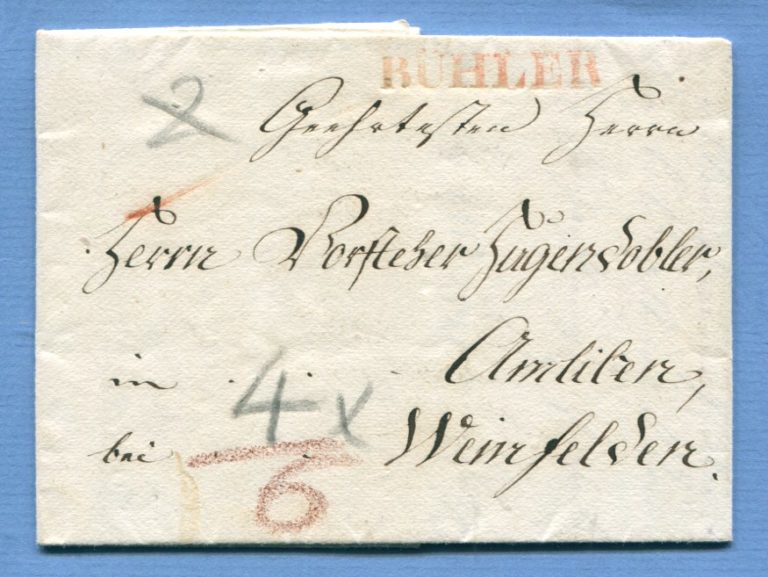 BÜHLER
2
Geehrtesten Herrn
Herrn Vorsteher Hugendobler,
in Amliken,
bei Weinfelden.
4x
6